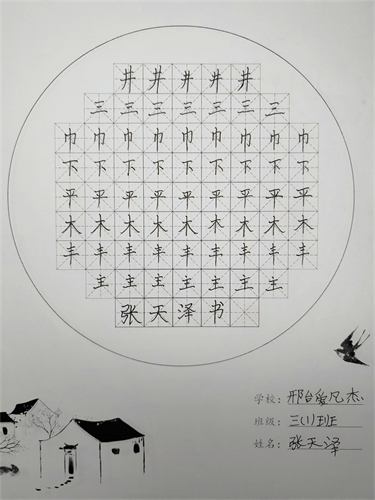 井井井井井
三三三三三三三
巾巾巾巾巾巾巾巾巾
下下下下下下下下下
平平平平平平平平平
木木木木木木木木木
丰丰丰丰丰丰丰丰丰
主主主主主主主
张天泽书
学校：邢台爱凡杰
班级：三(1)班
姓名：张天泽